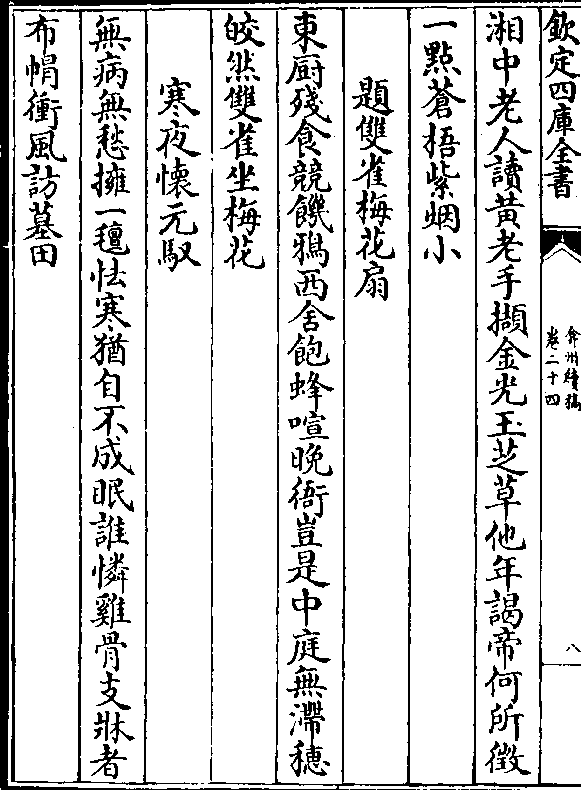 欽定四庫全書
弇州續稿
卷二十四
八
湘中老人讀黃老手擷金光玉芝草他年謁帝何所徵
一㸃蒼梧紫烟小
題雙雀梅花扇
東厨殘食競饑鴉西舍飽蜂喧晚衙豈是中庭無滯穗
皎然雙雀坐梅花
寒夜懷元馭
無病無愁擁一氊怯寒猶自不成眠誰憐雞骨支牀者
布㡌衝風訪墓田